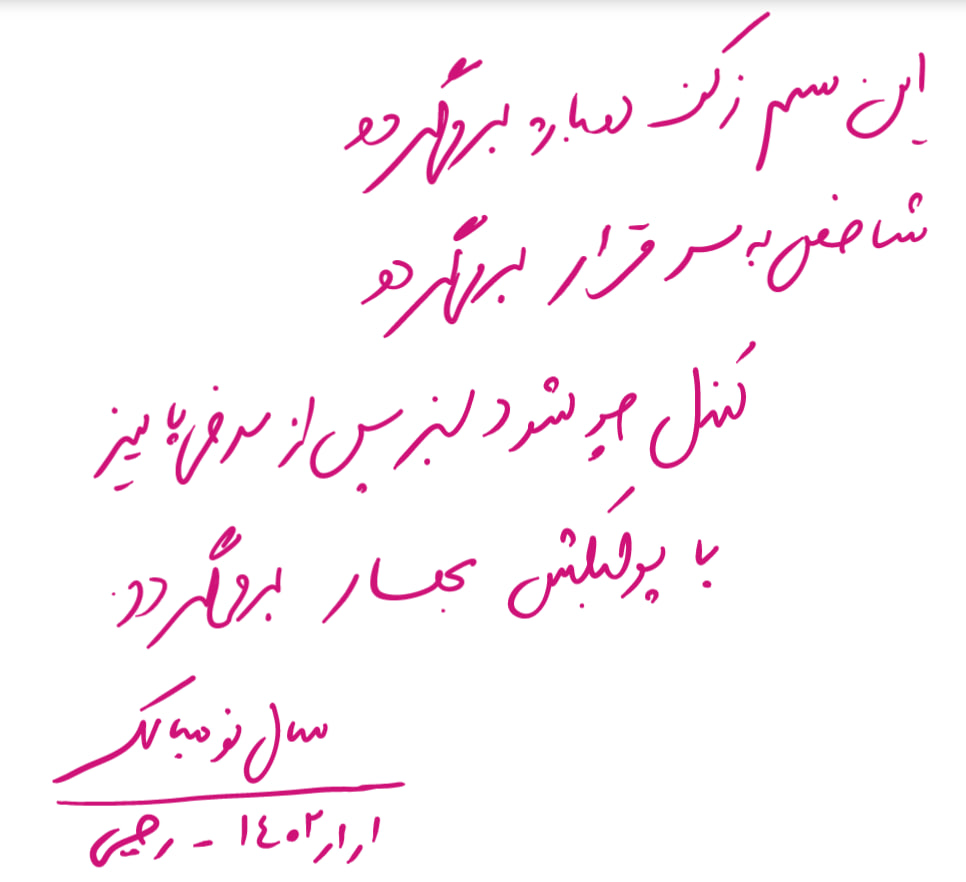 این سهم ز کف دوباره برمیگردد
شاخص به سر قرار برمیگردد
کندل چو شود سبز پس از سرخی پاییز
با پولبکش بهار برمیگردد
سال نو مبارک
۱۴۰۲/۱/۱ -